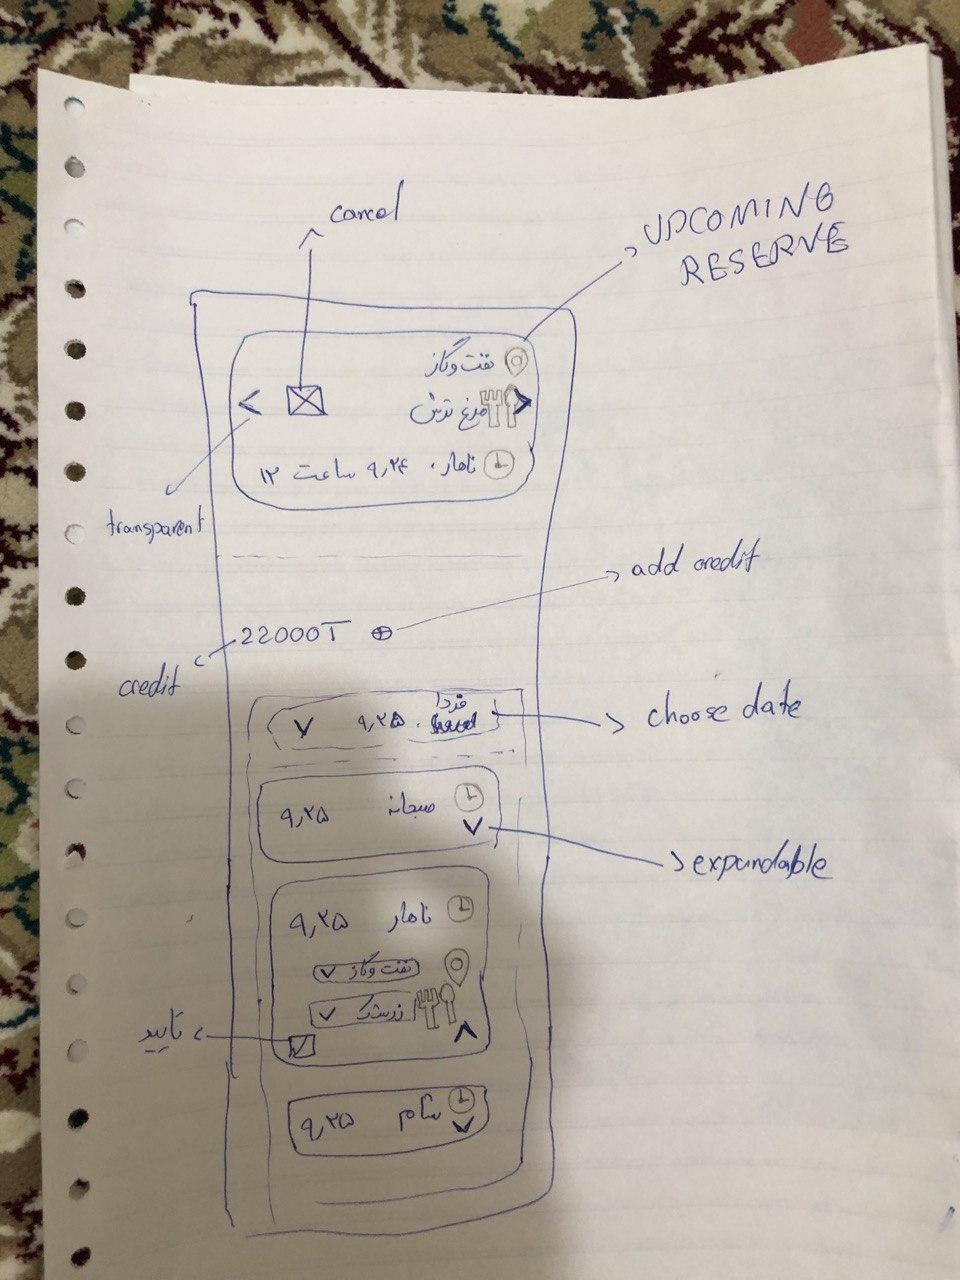 cancel
UPCOMING
RESERVE
نفت و گاز
مرغ ترش
ناهار . ۹٫۲۴ ساعت ۱۲
transparent
add credit
22000T
credit
فردا
۹٫۲۵ .
choose date
صبحانه ۹٫۲۵
expandable
ناهار ۹٫۲۵
نفت و گاز
زرشک
تایید
شام ۹٫۲۵